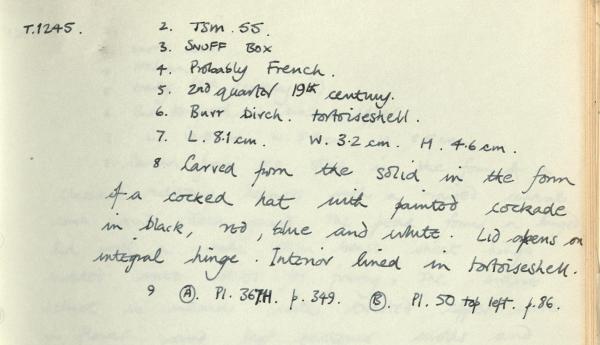 T.1245. 2. TSM. 55.
3. SNUFF BOX
4. Probably French.
5. 2nd quarter 19th century.
6. Burr Birch. tortoiseshell.
7. L. 8.1 cm. W. 3.2 cm. H. 4.6 cm.
8 Carved from the solid in the form
of a cocked hat with painted cockade
in black, red, blue and white. Lid opens on
integral hinge. Interior lined in tortoiseshell.
9 Ⓐ. Pl. 367H. p. 349. Ⓑ. Pl. 50 top left. p.86.